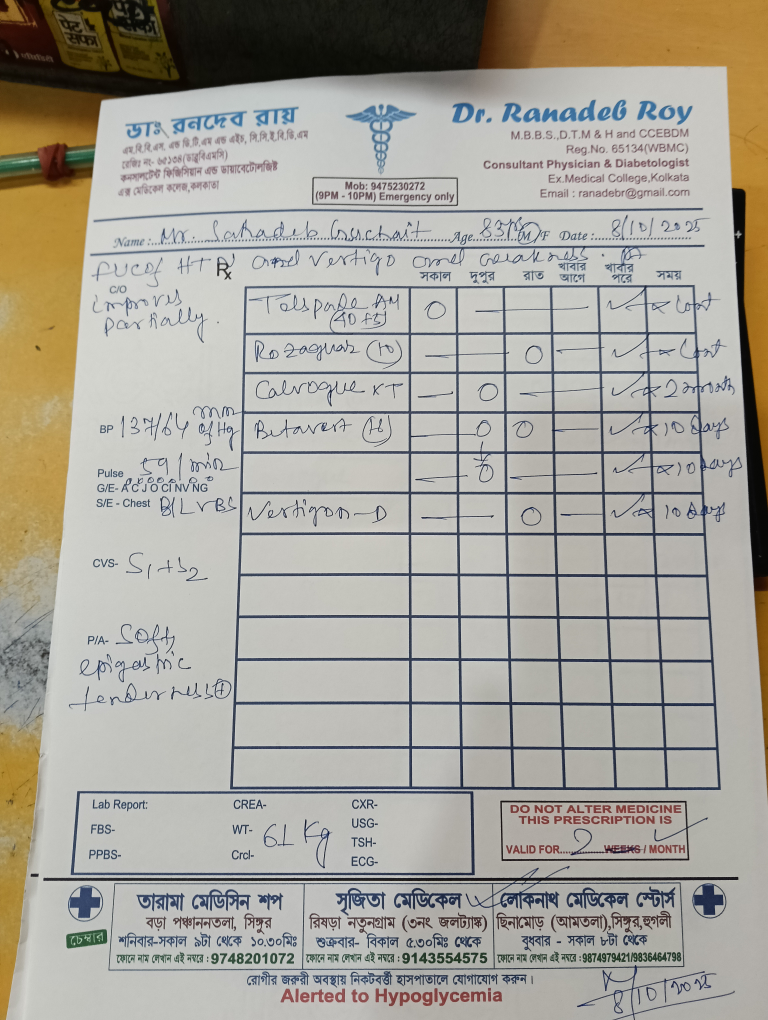 पेट सफा
ডাঃ রনদেব রায়
এম.বি.বি.এস. এন্ড ডি.টি.এম এন্ড এইচ, সি.সি.ই.বি.ডি.এম
রেজিঃ নং- ৬৫১৩৪(ডব্লুবিএমসি)
কনসালটেন্ট ফিজিসিয়ান এন্ড ডায়াবেটোলজিষ্ট
এক্স মেডিকেল কলেজ,কলকাতা
Mob: 9475230272
(9PM - 10PM) Emergency only
Dr. Ranadeb Roy
M.B.B.S.,D.T.M & H and CCEBDM
Reg.No. 65134(WBMC)
Consultant Physician & Diabetologist
Ex.Medical College,Kolkata
Email : ranadebr@gmail.com
Name : Mr. Sahadeb Age 83 M/F Date : 8/10/2025
HTN and vertigo and weakness.
Rx
সকাল দুপুর রাত খাবার আগে খাবার পরে সময়
C/O
improves
partially.
AM (40+5) Cont
(10) Cont
XT 2 month
BP 137/64 mm of Hg
Betavert (16) 10 days
Pulse 59/min
10 days
G/E- A C J O CI NV NG
S/E - Chest B/L VBS
Vertigon-D 10 days
CVS- S1+S2
P/A- Soft,
epigastric
tenderness +
Lab Report:
FBS-
PPBS-
CREA-
WT- 61 Kg
Crcl-
CXR-
USG-
TSH-
ECG-
DO NOT ALTER MEDICINE
THIS PRESCRIPTION IS
VALID FOR......2......WEEKS / MONTH
চেম্বার
তারামা মেডিসিন শপ
বড়া পঞ্চাননতলা, সিঙ্গুর
শনিবার-সকাল ৯টা থেকে ১০.৩০মিঃ
ফোনে নাম লেখান এই নম্বরে : 9748201072
সৃজিতা মেডিকেল
রিষড়া নতুনগ্রাম (৩নং জলট্যাঙ্ক)
শুক্রবার- বিকাল ৫.৩০মিঃ থেকে
ফোনে নাম লেখান এই নম্বরে : 9143554575
লোকনাথ মেডিকেল স্টোর্স
ছিনামোড় (আমতলা),সিঙ্গুর,হুগলী
বুধবার - সকাল ৮টা থেকে
ফোনে নাম লেখান এই নম্বরে : 9874979421/9836464798
রোগীর জরুরী অবস্থায় নিকটবর্ত্তী হাসপাতালে যোগাযোগ করুন।
Alerted to Hypoglycemia
8/10/2025